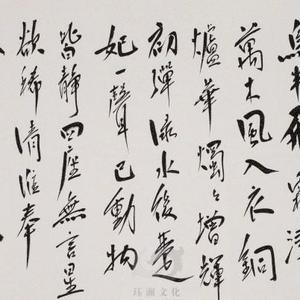 烏半飛霜淒
萬木風入衣銅
爐華燭々增輝
初彈淥水後楚
妃一聲已動物
皆靜四座無言星
欲稀清淮奉
文化